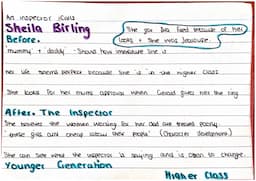 An inspector calls
Sheila Birling
She got Eva fired because of her
looks + she was jealous.
Before.
"mummy" + "daddy" - Shows how immature she is
Her life seems perfect because she is in the higher class
She looks for her mums approval when Gerald gives her the ring
After. The Inspector
She realises the women working for her dad are treated poorly
these girls aren't cheap labour they're people" (Character development)
She can see what the inspector is saying and is open to change.
Younger Generation
Higher Class